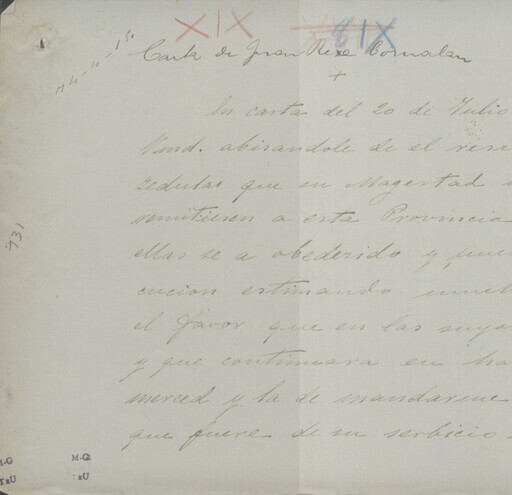 XIX XIX
Carta de Juan Rexe Corvalan
+
In carta del 20 de Julio
Vmd. abisandole de el rese
zedulas que en Magestad
remitiesen a esta Provincia
ellas se a obederido y pue
cucion estimando much
el favor que en las suya
y que continuara en ha
merced y la de mandarme
que fuere de su serbicio
731
M-G
TzU
M-G
TzU